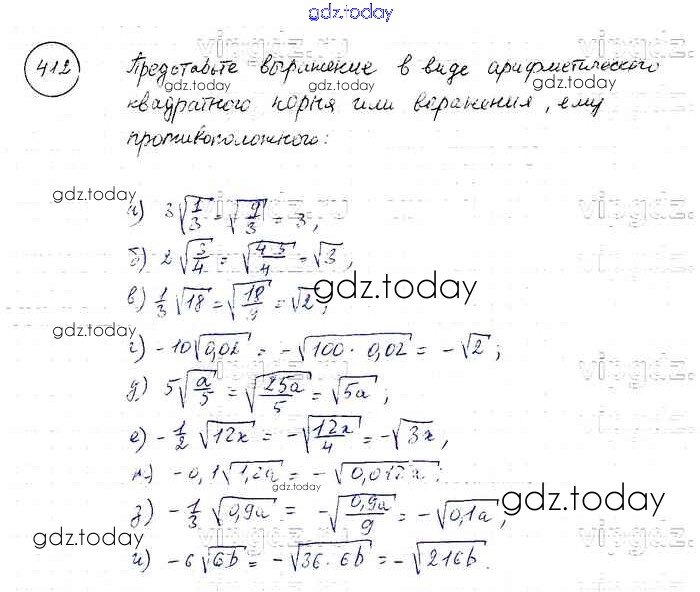 gdz.today
412
Представьте выражение в виде арифметического
квадратного корня или выражения, ему
противоположного:
gdz.today
а) 3√(1/3) = √(9/3) = 3,
б) 2√(3/4) = √(4·3/4) = √3,
в) 1/3 √18 = √(18/9) = √2,
gdz.today
gdz.today
г) -10√0,02 = -√(100·0,02) = -√2;
д) 5√(a/5) = √(25a/5) = √5a;
е) -1/2 √12x = -√(12x/4) = -√3x,
ж) -0,1√1,2a = -√0,012a;
gdz.today
gdz.today
з) -1/3 √0,9a = -√(0,9a/9) = -√0,1a,
gdz.today
gdz.today
и) -6√6b = -√(36·6b) = -√216b.